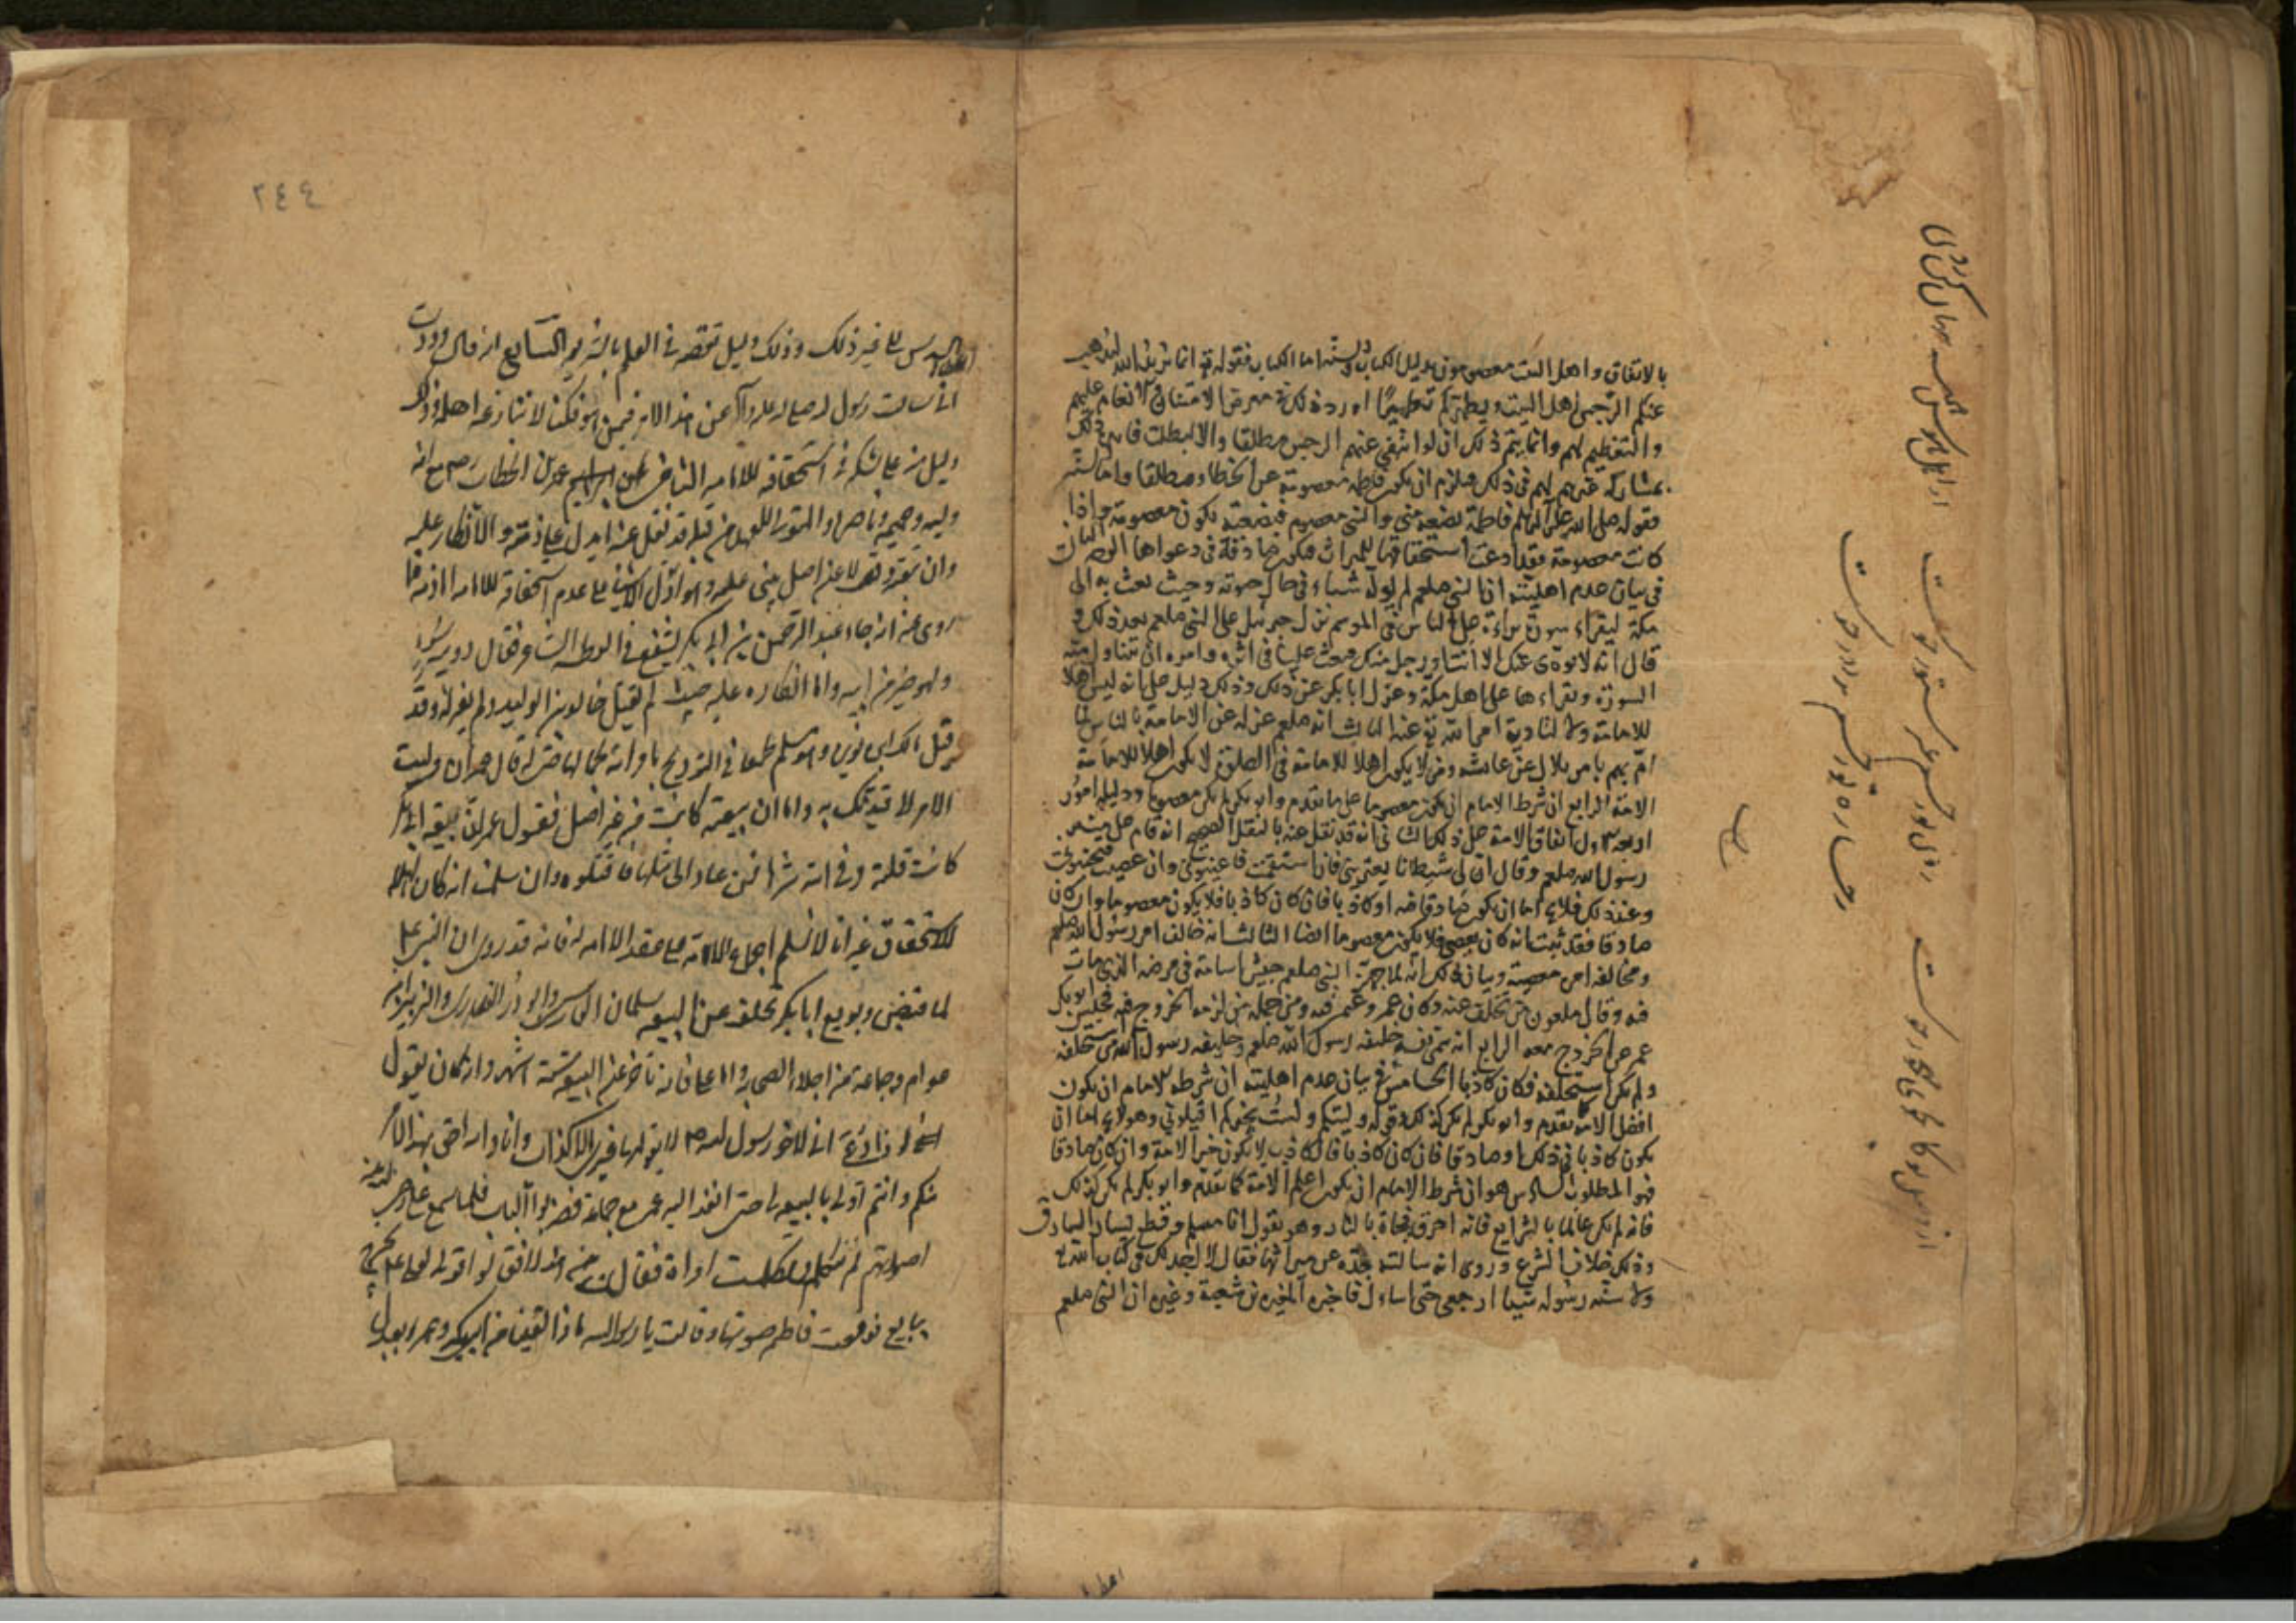 بالاتفاق واهل البيت معصومون بدليل الكتاب والسنة اما الكتاب فقوله تع انما يريد الله ليذهب
عنكم الرجس اهل البيت ويطهركم تطهيرا اورد ذلك في معرض الامتنان والانعام عليهم
والتعظيم لهم وانما يتم ذلك ان لو انتفى عنهم الرجس مطلقا والا لبطلت فايدة ذلك
بمشاركة غيرهم لهم في ذلك فيلزم ان يكون فاطمة معصومة عن الخطاء مطلقا واما السنة
فقوله صلى الله عليه وآله وسلم فاطمة بضعة مني والنبي معصوم فبضعته يكون معصومة واذا
كانت معصومة فقد ادعت استحقاقها للميراث فيكون صادقة في دعواها الثاني
في بيان عدم اهليته ان النبي صلعم لم يوله شياء في حال حيوته وحيث بعث به الى
مكة ليقراء سورة براءة على الناس في الموسم نزل جبرئيل على النبي صلعم بعد ذلك و
قال انه لا يودي عنك الا انت او رجل منك فبعث عليا في اثره وامره ان يتناول منه
السورة ويقراءها على اهل مكة وعزل ابا بكر عن ذلك وذلك دليل على انه ليس اهلا
للامامة ولا لتادية امر الله تع عنه الثالث انه صلعم عزله عن الامامة بالناس لما
امّ بهم بامر بلال عن عايشه ومن لا يكون اهلا للامامة في الصلوة لا يكون اهلا للامامة
الامة الرابع ان شرط الامام ان يكون معصوما على ما تقدم وابو بكر لم يكن معصوما ودليله امور
اربعة الاول اتفاق الامة على ذلك الثاني انه قد نقل عنه بالنقل الصحيح انه قام على منبر
رسول الله صلعم وقال ان لي شيطانا يعتريني فان استقمت فاعينوني وان عصيت فجنبوني
وعند ذلك فلا يخ اما ان يكون صادقا فيه او كاذبا فان كان كاذبا فلا يكون معصوما وان كان
صادقا فقد ثبت انه كان يعصي فلا يكون معصوما ايضا الثالث انه خالف امر رسول الله صلعم
ومخالفة امره معصية وبيان ذلك انه لما جهز النبي صلعم جيش اسامة في مرضه الذي مات
فيه وقال ملعون من تخلف عنه وكان عمر وفيه ومن جملة من لزمه الخروج فيه فحبس ابو بكر
عمر عن الخروج معه الرابع انه سمى نفسه خليفة رسول الله صلعم وخليفة رسول الله من يستخلفه
ولم يكن استخلفه فكان كاذبا الخامس في بيان عدم اهليته ان شرط الامام ان يكون
افضل الامة لما تقدم وابو بكر لم يكن كذلك لقوله وليتكم ولست بخيركم اقيلوني وهو لا يخ اما ان
يكون كاذبا في ذلك او صادقا فان كان كاذبا فالكاذب لا يكون خير الامة وان كان صادقا
فهو المطلوب السادس هو ان شرط الامام ان يكون اعلم الامة كما تقدم وابو بكر لم يكن كذلك
فانه لم يكن عالما بالشرايع فانه احرق فجاة بالنار وهو يقول انا مسلم وقطع يسار السارق
وذلك خلاف الشرع وروى انه سالته جدة عن ميراثها فقال لا اجد لك في كتاب الله
ولا سنة رسوله شيا ارجعي حتى اساءل فاخبره المغيرة بن شعبة وغيره ان النبي صلعم
٢٤٤
السدس الى غير ذلك وذلك دليل تقصيره في العلم بالشريعة السابع انه قال وددت
اني سالت رسول الله صلى الله عليه وآله عن هذا الامر فيمن هو فكنا لا ننازعه اهله وذلك
دليل على شكه في استحقاقه للامامة الثامن عمر بن الخطاب رض مع انه
وليه وحميمه وناصره والمتولي للعهد من قبله قد نقل عنه ما يدل على ذمه والانكار عليه
وان بيعته لا عن اصل يبنى عليه وهو ادل الاشياء على عدم استحقاقه للامامة اما ذمه فما
روى عنه انه جاء عبد الرحمن بن ابي بكر ليشفع في الحطية الشاعر فقال دويبة سوء
ولهو خير من ابيه واما انكاره عليه حيث لم يقتل خالد بن الوليد ولم يعزله وقد
قتل مالك بن نويرة وهو مسلم طمعا في التزويج بامراته لجمالها حتى انه قال عمر ان وليت
الامر لاقيدنك به واما ان بيعته كانت من غير اصل فقول عمر ان بيعة ابي بكر
كانت فلتة وقى الله شرها فمن عاد الى مثلها فاقتلوه وان سلمنا انه كان اهلا
للاستحقاق غير انا لا نسلم اجماع الامة على عقد الامامة له فانه قد روى ان النبي ع م
لما قبض وبويع ابا بكر تخلف عن البيعة سلمان الفارسي وابو ذر الغفاري والزبير بن
عوام وجماعة من اجلاء الصحابة واما علي فانه تاخر عن البيعة ستة اشهر وانه كان يقول
اني لاخو رسول الله ص لا يقولها غيري الا كذاب وانا والله احق بهذا الامر
منكم وانتم اولى بالبيعة لي حتى انفذ اليه عمر مع جماعة فضربوا الباب فلما سمع علي رضي الله عنه
اصواتهم لم يتكلم وتكلمت امراة فقالت
يبايع فرفعت فاطمة صوتها وقالت يا رسول الله ماذا لقينا من ابي بكر وعمر بعدك